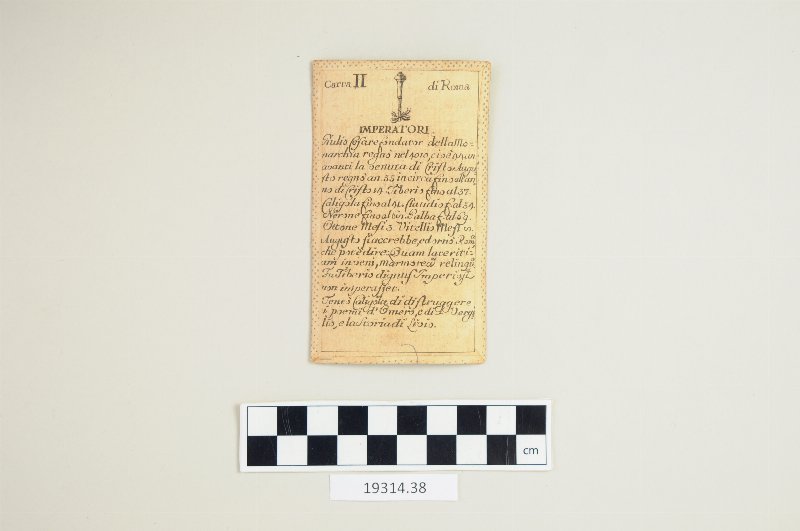 Carta II di Roma
IMPERATORI.
Giulio Cesare fondator della Mo-
narchia regnò nel
avanti la venuta di Cristo. Augu
sto regnò an. 55 incirca fino all'an
no di Cristo 14. Tiberio fino al 37.
Caligola fino al 41. Claudio f. al 54.
Nerone fino al Galba f. al 69.
Ottone Mesi 3. Vitellio Mesi
Augusto s'accrebbe, ed ornò Rom
che potè dire: Quam lateriti-
am inveni, marmoream relinqu
In Tiberio dignus Imperio, si
non imperasset.
Tentò Caligola di distruggere
i poemi d'Omero, e di Vergi
lio, e la storia di Livio.
cm
19314.38